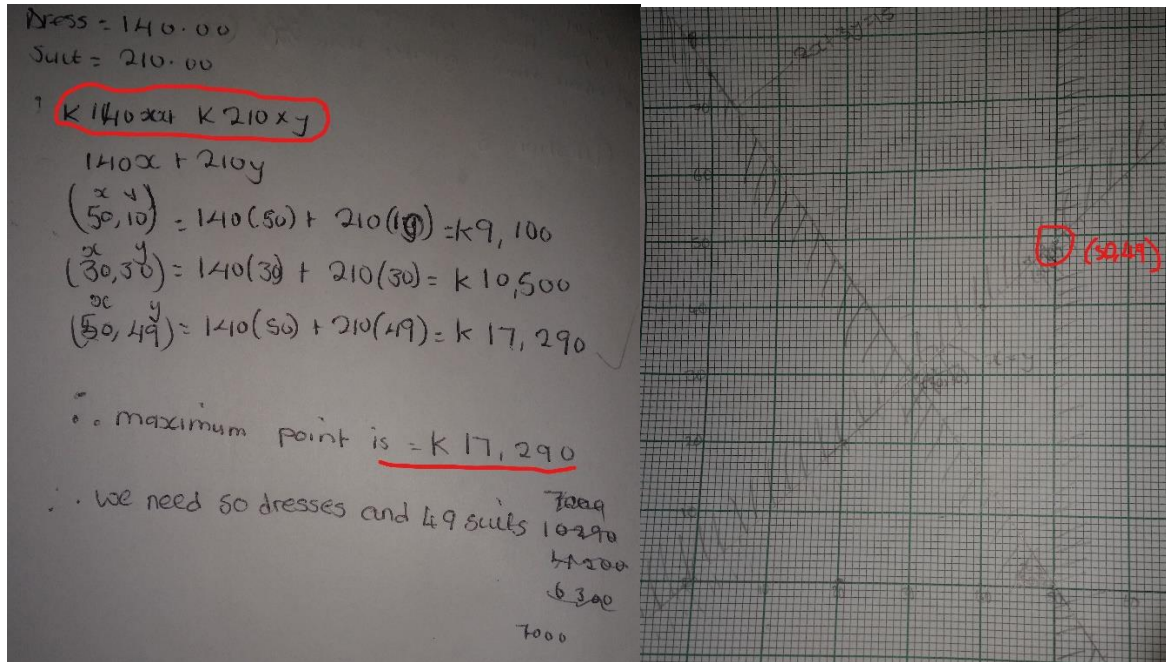 Dress = 140.00
Suit = 210.00
K 140xx+ K 210xy
140x + 210y
x y
(50,10) = 140(50) + 210(10) = K9,100
x y
(30,30) = 140(30) + 210(30) = K 10,500
x y
(50, 49) = 140(50) + 210(49) = K 17,290
∴ maximum point is = K 17,290
∴ we need 50 dresses and 49 suits
10290
7000
70
60
50
(50,49)
x=y
30
20